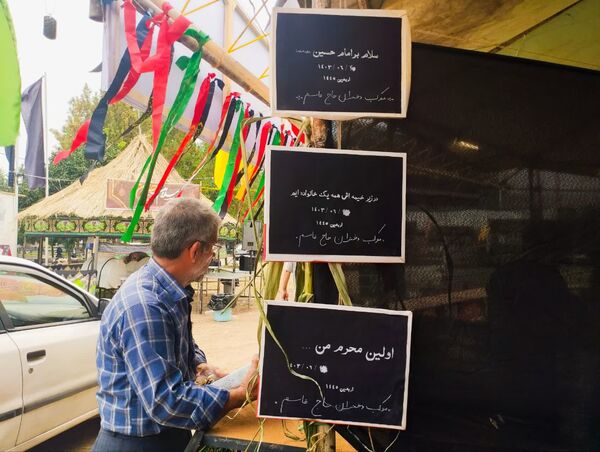 سلام بر امام حسین
۱۴۰۳ / ۰۶ /
اربعین ۱۴۴۵
موکب دختران حاج قاسم
در زیر خیمه الی همه یک خانواده ایم
۱۴۰۳ / ۰۶ /
اربعین
۱۴۴۵
موکب دختران حاج قاسم.
اولین محرم من ...
۱۴۰۳ / ۰۶ /
اربعین ۱۴۴۵
موکب دختران حاج قاسم.